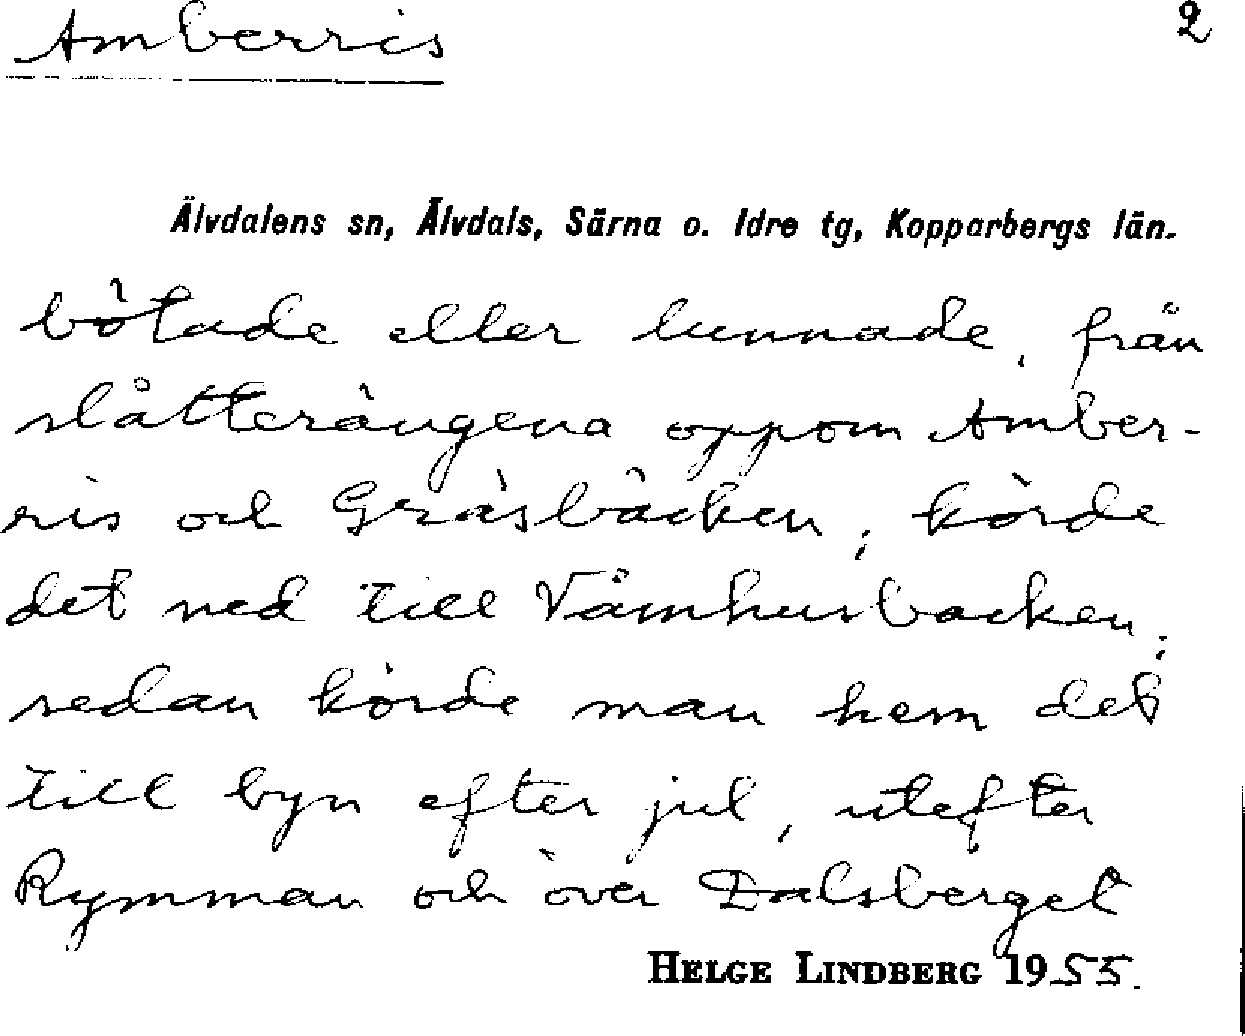 Amberris 2
Älvdalens sn, Älvdals, Särna o. Idre tg, Kopparbergs län.
bötade eller lunnade, från
slåtterängena oppom Amber-
ris och Gräsbäcken; körde
det ned till Våmhusbacken;
sedan körde man hem det
till byn efter jul, utefter
Rymman och över Dalsberget
HELGE LINDBERG 1955.